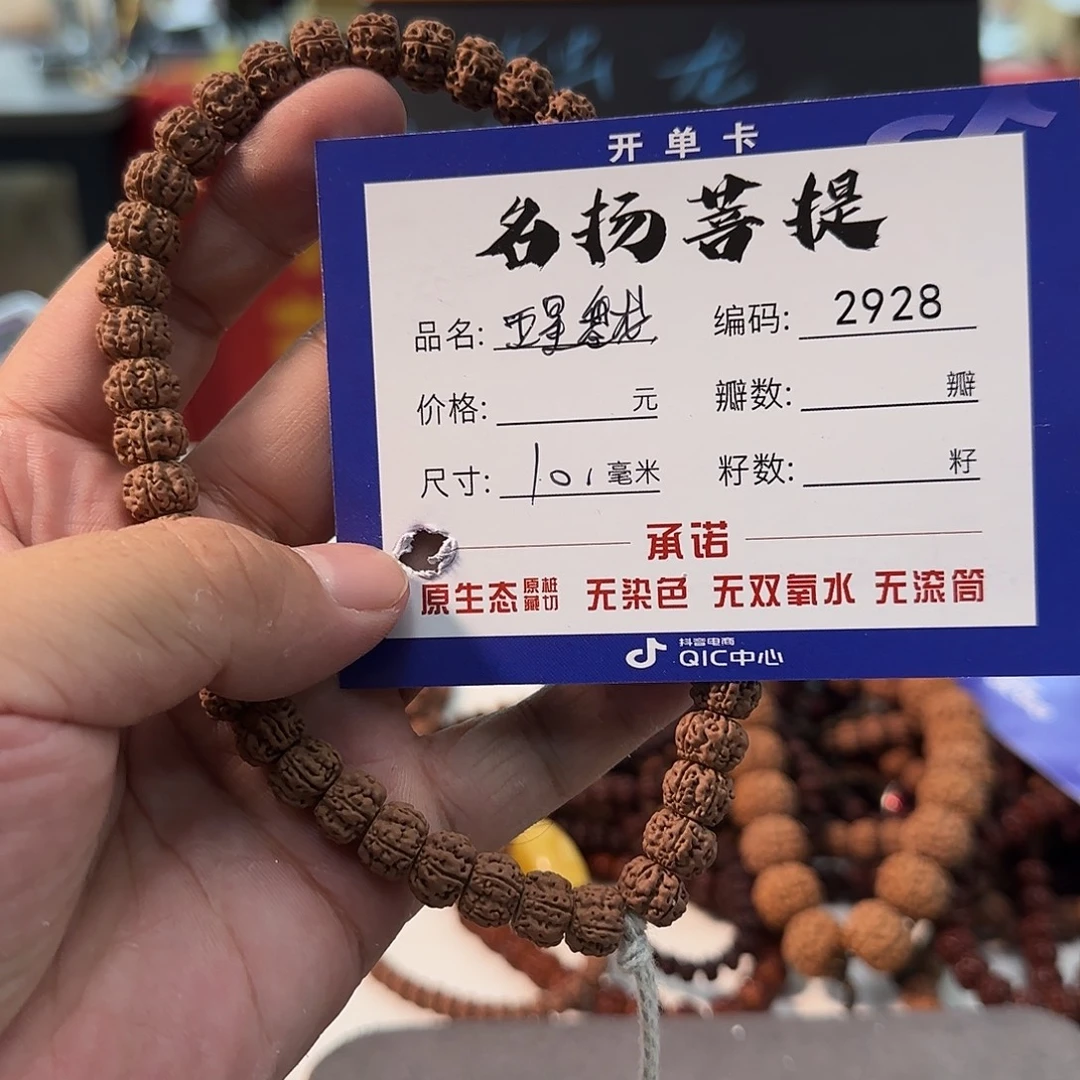 开单卡
名扬菩提
品名: 编码: 2928
价格: 元 瓣数: 瓣
尺寸: 10.1毫米 籽数: 籽
承诺
原生态 原桩藏切 无染色 无双氧水 无滚筒
抖音电商
QIC中心